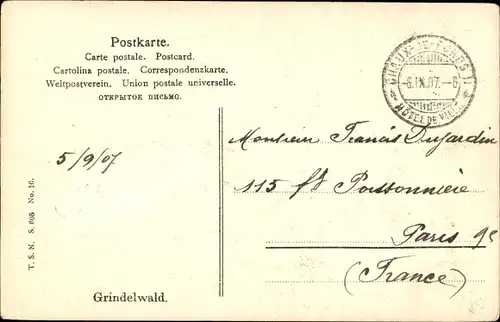 Postkarte.
Carte postale. Postcard.
Cartolina postale. Correspondenzkarte.
Weltpostverein. Union postale universelle.
ОТКРЫТОЕ ПИСЬМО.
CHAUX-DE-FONDS
-6.IX.07.-8
HÔTEL DE VILLE
5/9/07
Monsieur Francis Dujardin
115 fg Poissonnière
Paris 9e
(France)
T. S. N. S. 605 No. 10.
Grindelwald.